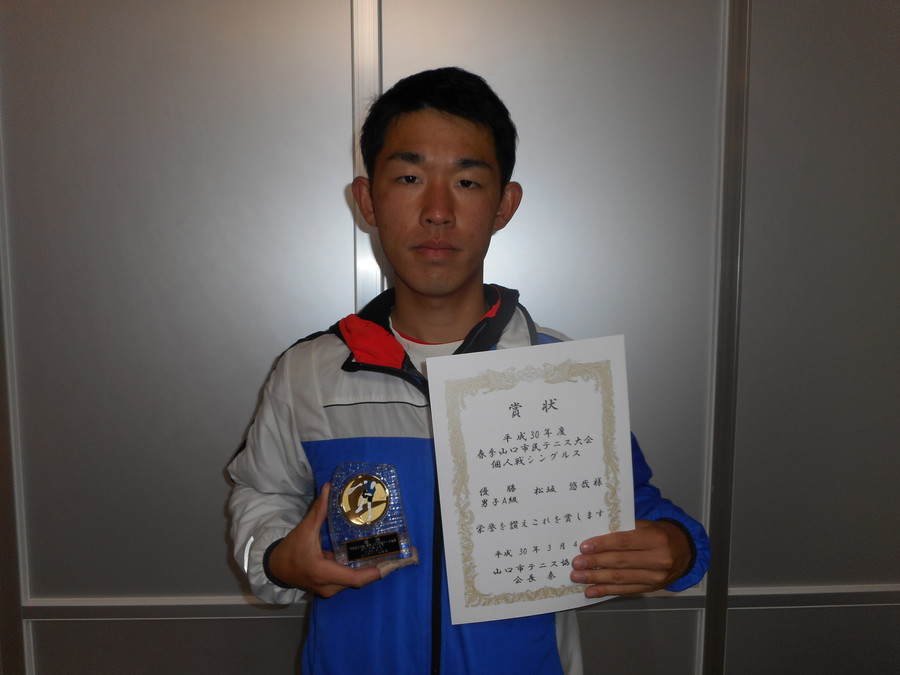 賞状
平成30年度
春季山口市民テニス大会
個人戦シングルス
優勝 松城 悠哉様
男子A級
栄誉を讃えこれを賞します
平成30年3月4
山口市テニス協
会長